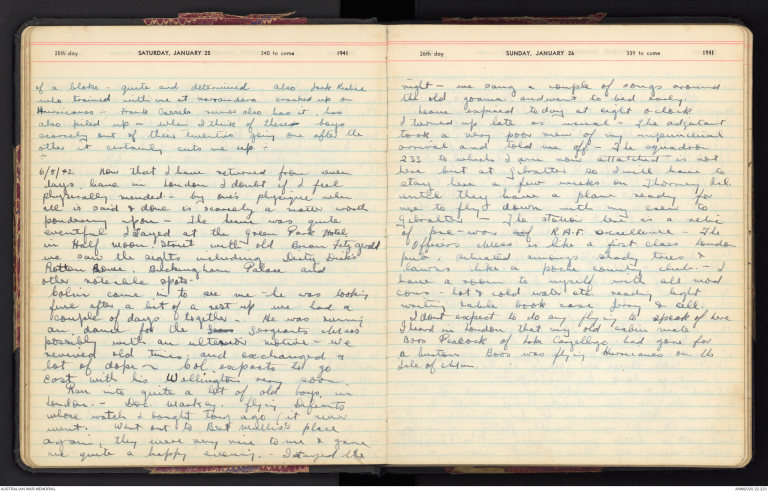 25th day SATURDAY, JANUARY 25 340 to come 1941
of a bloke - quite and determined also Jack
who trained with me at Narrandera cracked up on
Hurricanes - Frank rumor also has it has
also piled up - when I think of these boys
scarcely out of their twenties going one after the
other it certainly cuts me up -
6/5/42. Now that I have returned from seven
days leave in London I doubt if I feel
physically mended - by one's physique when
all is said & done is scarcely a matter worth
pondering upon - The leave was quite
eventful I stayed at the Green Park Hotel
in Half Moon Street with old Brian Fitzgerald
we saw the sights including Dirty Dick's
Rotten Row. Buckingham Palace and
other noteable spots.
Colin came in to see me - he was looking
fine after a bit of a rest up we had a
couple of days together - He was running
a dance for the Sergeants Mess
possibly with an ulterior motive - We
reviewed old times and exchanged a
lot of dope - Col. expects to go
East with his Wellington very soon.
Ran into quite a lot of old boys in
London. - Doc. flying
whose watch I bought long ago (it never
went. Went out to Bert Wallis's place
again, they were very nice to me & gave
me quite a happy evening. - I stayed the
AUSTRALIAN WAR MEMORIAL
26th day SUNDAY, JANUARY 26 339 to come 1941
night - we sang a couple of songs around
the old and went to bed early.
Leave expired today at eight o'clock
I turned up late as usual - The adjutant
took a very poor view of my unpunctual
arrival and told me off - The squadron
233 to which I am now attatched is not
here but at Gibralter so I will have to
stay here a few weeks on Thorney Isl.
until they have a plane ready for
me to fly down with a crew to
Gibralter - The station here is a relic
of pre-war R.A.F. excellence - The
Officers Mess is like a first class London
pub. situated amongst shady trees &
lawns like a country club. - I
have a room to myself with all mod
cons - hot & cold water etc reading light
writing table book case & all.
I dont expect to do any flying to speak of here
I heard in London that my old cabin mate
Boos Peacock of Lake Cargellego had gone for
a burton Boos was flying Hurricanes on the
Isle of Man.
AWM2020.22.323